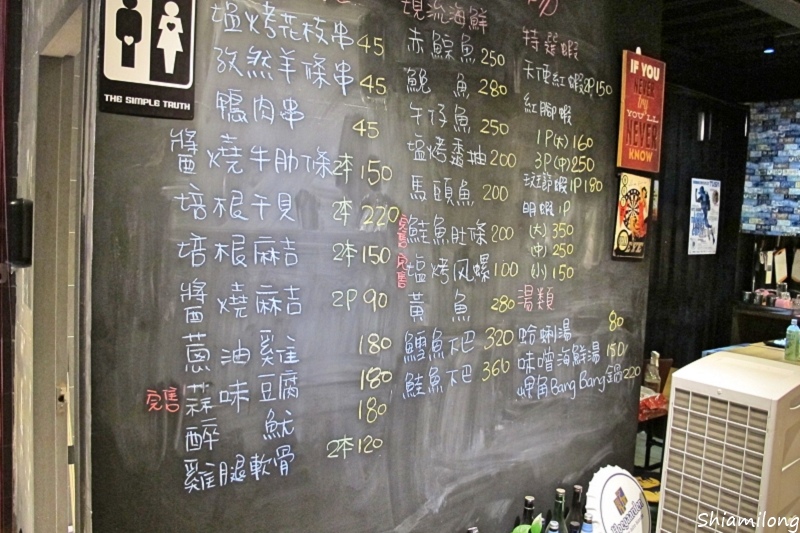 THE SIMPLE TRUTH
塩烤花枝串 45
孜然羊條串 45
鴨肉串 45
醬燒牛肋條 2本 150
培根干貝 2本 220
培根麻吉 2本 150
醬燒麻吉 2P 90
蔥油雞 180
完售 蒜味豆腐 180
醉魷 180
雞腿軟骨 2本 120
現流海鮮
赤鯮魚 250
鮸魚 280
午仔魚 250
塩烤透抽 200
馬頭魚 200
完售 鮭魚肚條 200
完售 塩烤风螺 100
黃魚 280
鱈魚下巴 320
鮭魚下巴 360
特選蝦
天使紅蝦 2P 150
紅腳蝦
1P(大) 160
3P(中) 250
斑節蝦 1P 180
明蝦 1P
(大) 350
(中) 250
(小) 150
湯類
哈蜊湯 80
味噌海鮮湯 180
岬角Bang Bang鍋 220
IF YOU
NEVER
try
YOU'LL
NEVER
KNOW
Hoegaarden
Shiamilong